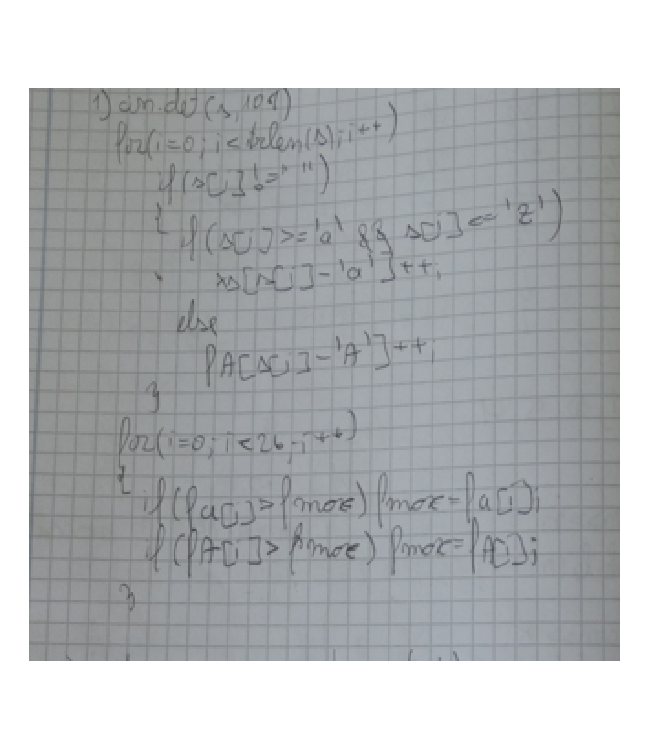 1) cin.get(s,101)
for(i=0; i<strlen(s); i++)
if(s[i]!=" ")
{
if(s[i]>='a' && s[i]<='z')
[s[i]-'a']++;
else
fA[s[i]-'A']++;
}
for(i=0; i<26; i++)
{
if(fa[i]>fmax) fmax=fa[i];
if(fA[i]>fmax) fmax=fA[i];
}